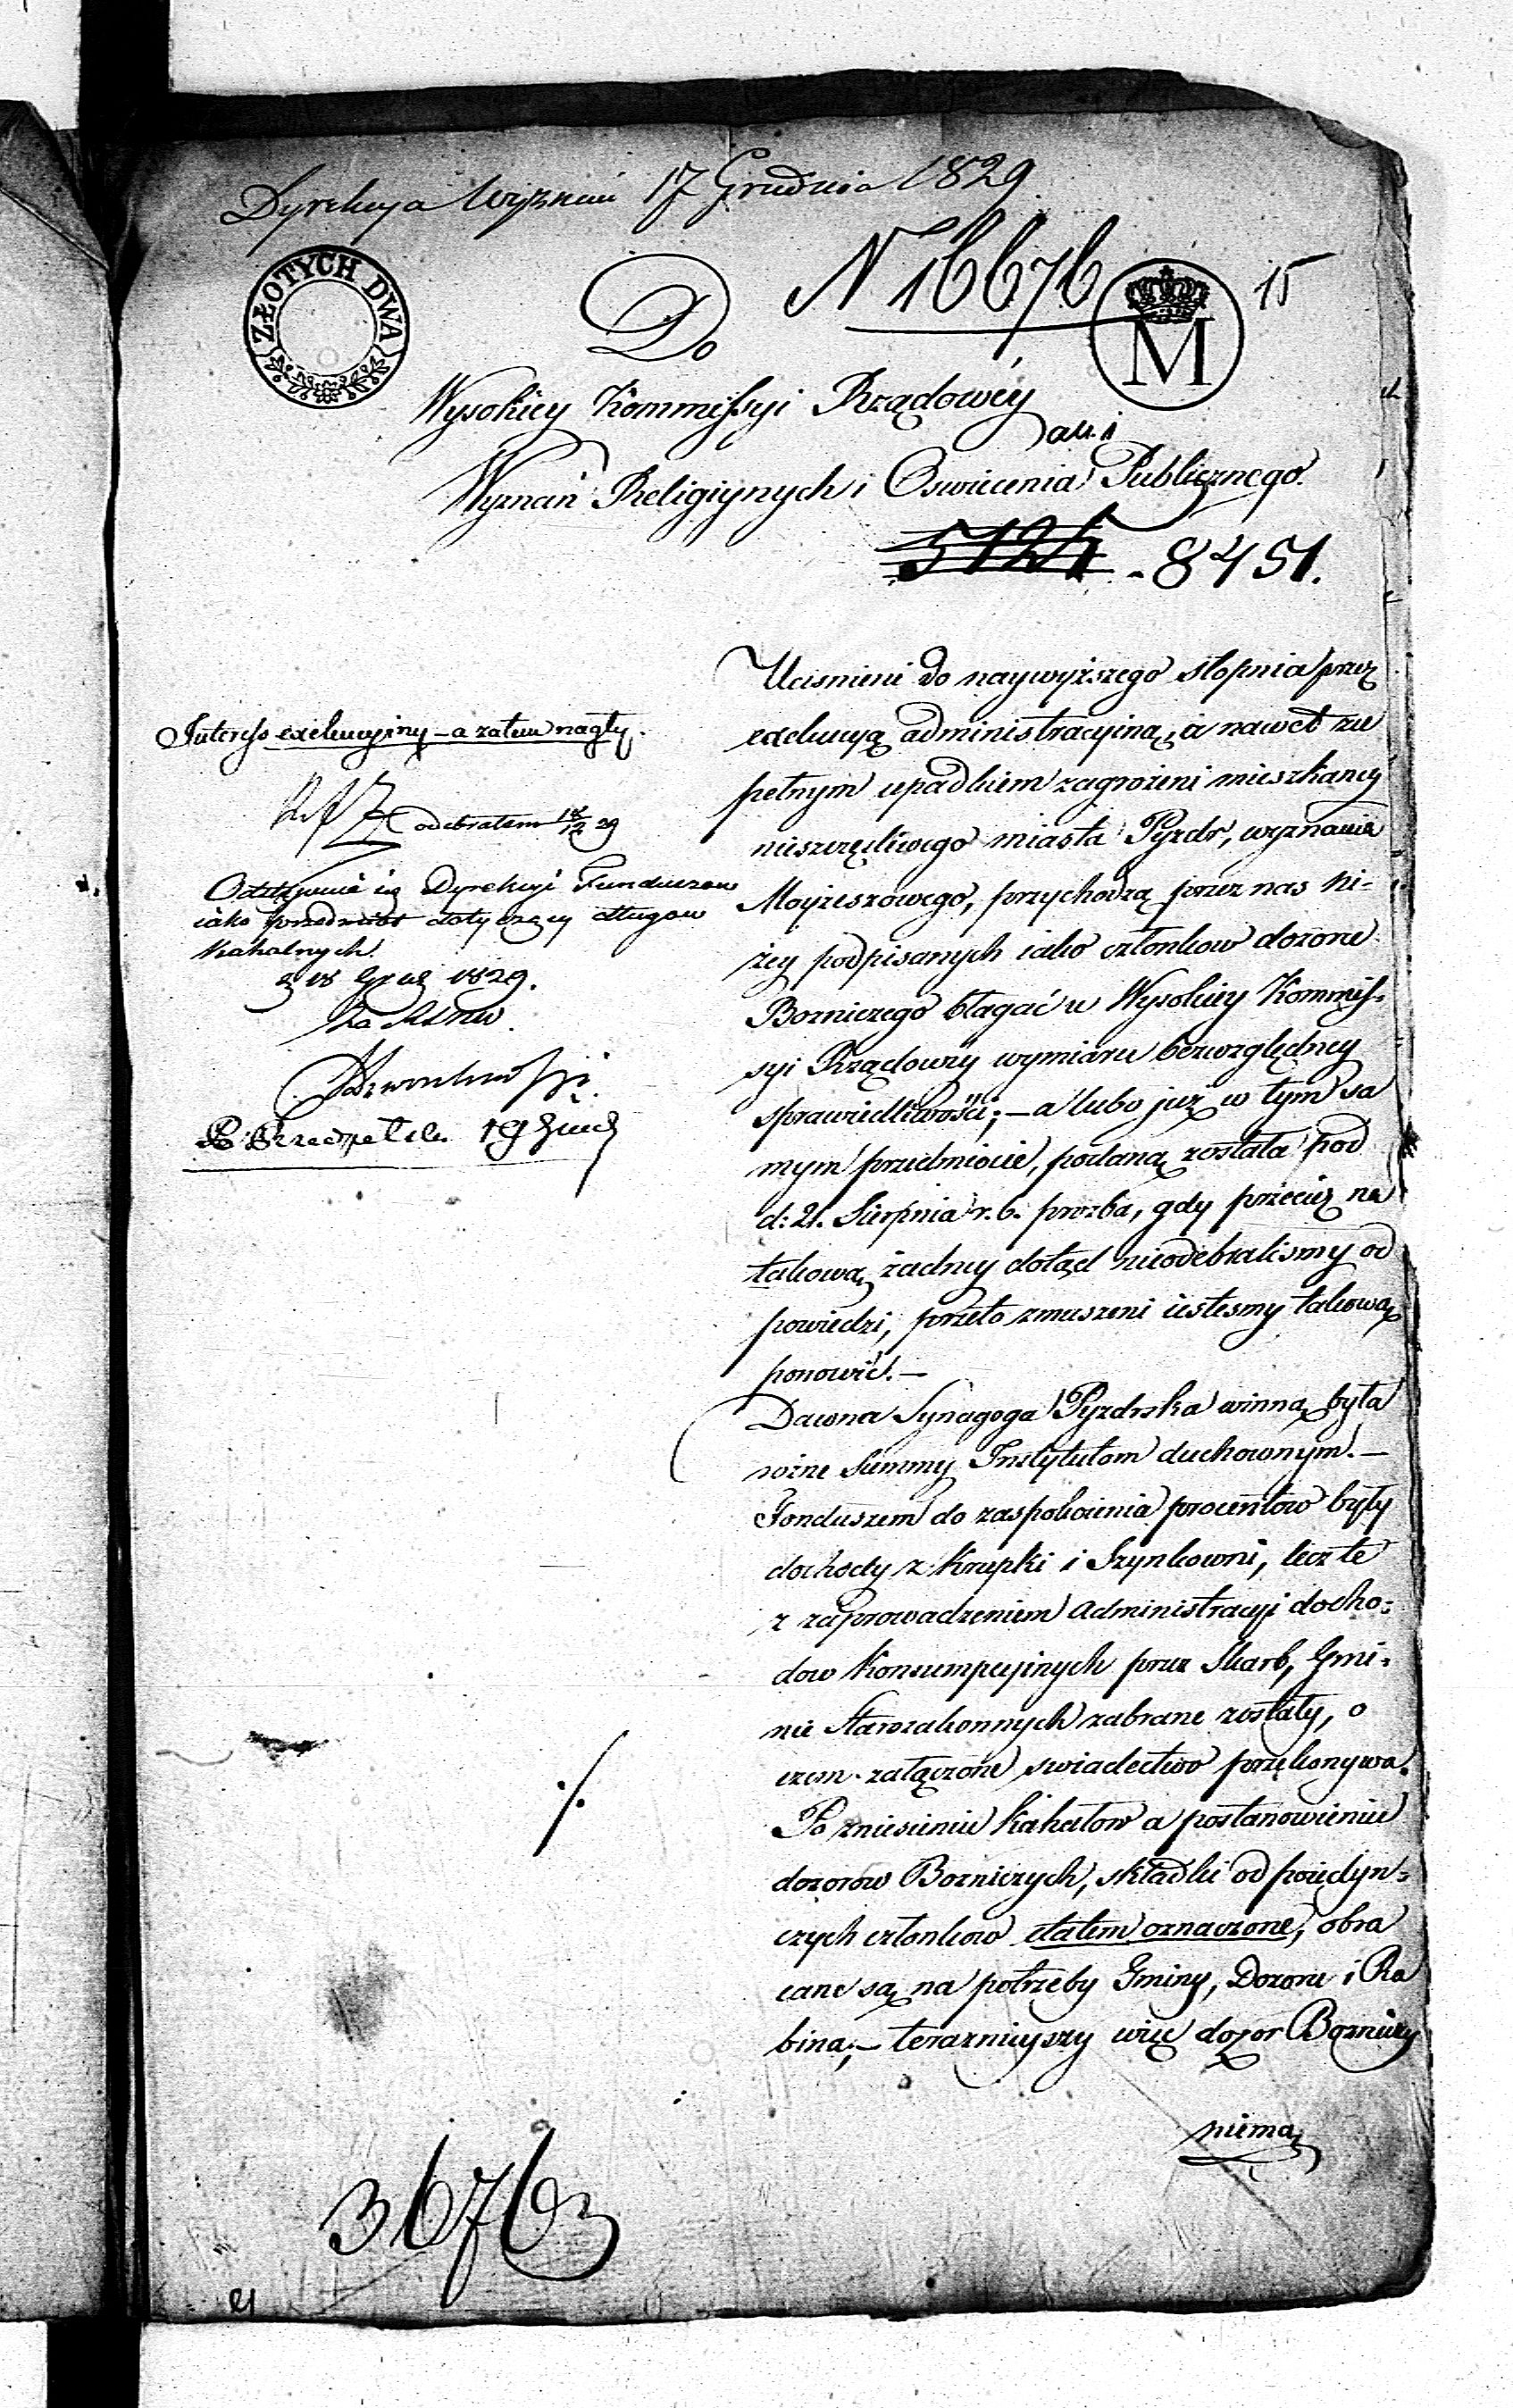 Dyrekcya Wyznań 17 Grudnia 1829
N 16676
15
ZŁOTYCH DWA
M
Do
Wysokiey Kommissyi Rządowéy
Wyznań Religiynych i Oswiecenia Publicznego.
5124 - 8451.
Interess exekucyiny - a zatem nagły.
odebrałem 18/12 29
Oddzywnie się Dyrekcyi Funduszow
iako przedmiot dotyczący długow
Kahalnych.
d 18 Grud 1829.
19 Grud
Ucisnieni do naywyższego stopnia przez
exekucyą administracyiną, a nawet zu
pełnym upadkiem zagrożeni mieszkancy
nieszczęśliwego miasta Pyzdr, wyznania
Mojżeszowego, przychodzą przez nas ni-
żey podpisanych iako członkow dozoru
Bozniczego błagać u Wysokiey Kommis-
syi Rządowéy wymiaru bezwzględney
sprawiedliwości; - a lubo już w tym sa
mym przedmiocie, podaną została pod
d: 21. Sierpnia r. b. prozba, gdy przeciez na
takową żadney dotąd nieodebralismy od
powiedzi, przeto zmuszeni iestesmy takową
ponowić. -
Dawna Synagoga Pyzdrska winną była
rożne Summy Instytutom duchownym. -
Fonduszem do zaspokoienia procentow były
dochody z Krupki i Szynkowni, lecz te
z zaprowadzeniem Administracyi docho-
dow Konsumpcyinych przez Skarb, Gmi-
nie Starozakonnych zabrane zostały, o
czem załączone swiadectwo przekonywa.
Po zniesieniu Kahałow a postanowieniu
dozorow Bozniczych, składki od poiedyn-
czych członkow etatem oznaczone, obra
cane są na potrzeby Gminy, Dozoru i Ra
bina; - terazniejszy więc dozor Bozniczy
niema
36763